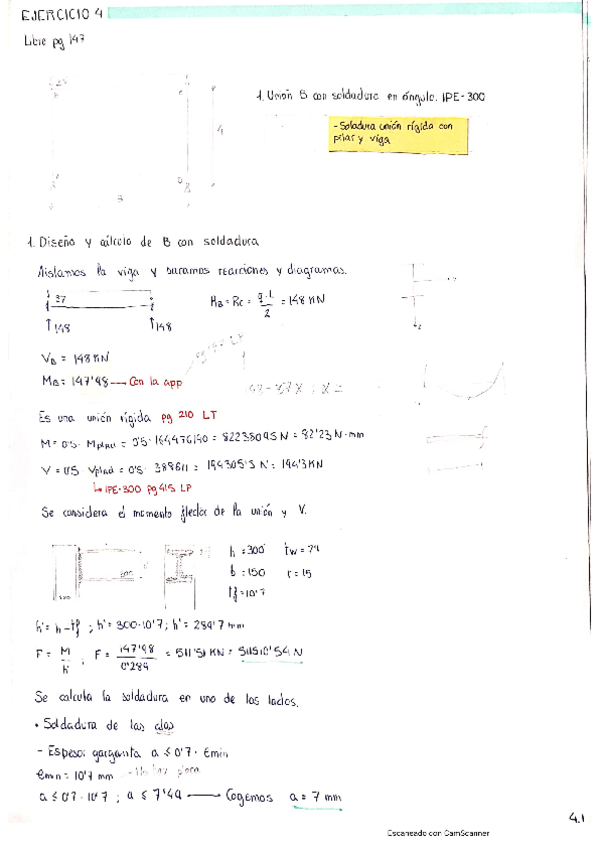 EJERCICIO 4
Libre pg 147
1. Unión B con soldadura en ángulo. IPE-300
- Soladura unión rígida con
pilar y viga
4
8
1. Diseño y cálculo de B con soldadura
Aislamos la viga y sacamos reacciones y diagramas.
37
RB = Rc = q·L / 2 = 148 KN
↑148 ↑148
VB = 148 KN
MB = 147'98 → Con la app
Es una unión rígida pg 210 LT
M = 0'5 · Mplrd = 0'5 · 164476190 = 82238095 N = 82'23 N·mm
V = 0'5 Vplrd = 0'5 · 388611 = 194305'5 N = 194'3 KN
↳ IPE-300 pg 415 LP
Se considera el momento flector de la unión y V.
h = 300 tw = 7'1
b = 150 r = 15
tf = 10'7
h' = h - tf ; h' = 300-10'7 ; h' = 289'7 mm
F = M / h' ; F = 147'98 / 0'289 = 511'51 KN = 511510'54 N
Se calcula la soldadura en uno de los lados.
• Soldadura de las alas
- Espesor garganta a ≤ 0'7 · emin
emin = 10'7 mm - No hay placa
a ≤ 0'7 · 10'7 ; a ≤ 7'49 → Cogemos a = 7 mm
4.1
Escaneado con CamScanner